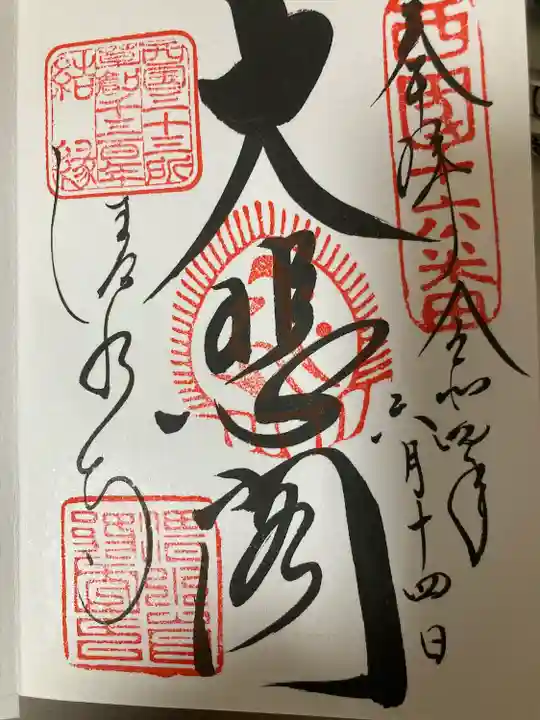 奉拝 令和四年
六月十四日
西国十六番
大悲閣
西国三十三所
草創千三百年
結縁
清水寺